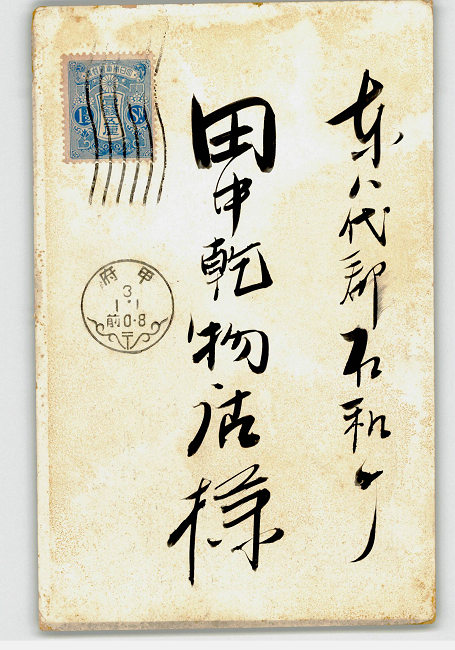 東八代郡石和町
田中乾物店様
1½ Sn
甲府
3
1.1
前0-8
〒